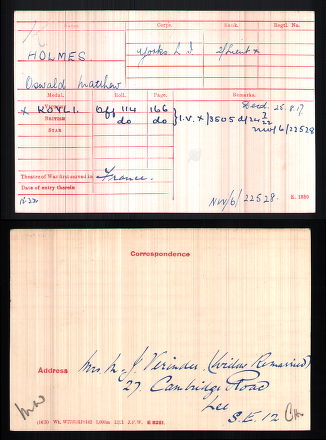 Name. Corps. Rank. Regtl. No.
HOLMES Yorks L I 2/Lieut x
Oswald Matthew
Medal. Roll. Page. Remarks.
Victory x KOYLI. Off 114 166 Dead. 28.8.17
British do do I.V. x/3505 d/24
Star NW/6/22528
Theatre of War first served in France.
Date of entry therein
NW/6/22528. K. 1380
Correspondence
Address Mrs M. J. Verinder (Widow Remarried)
27 Cambridge Road
Lee
S.E. 12